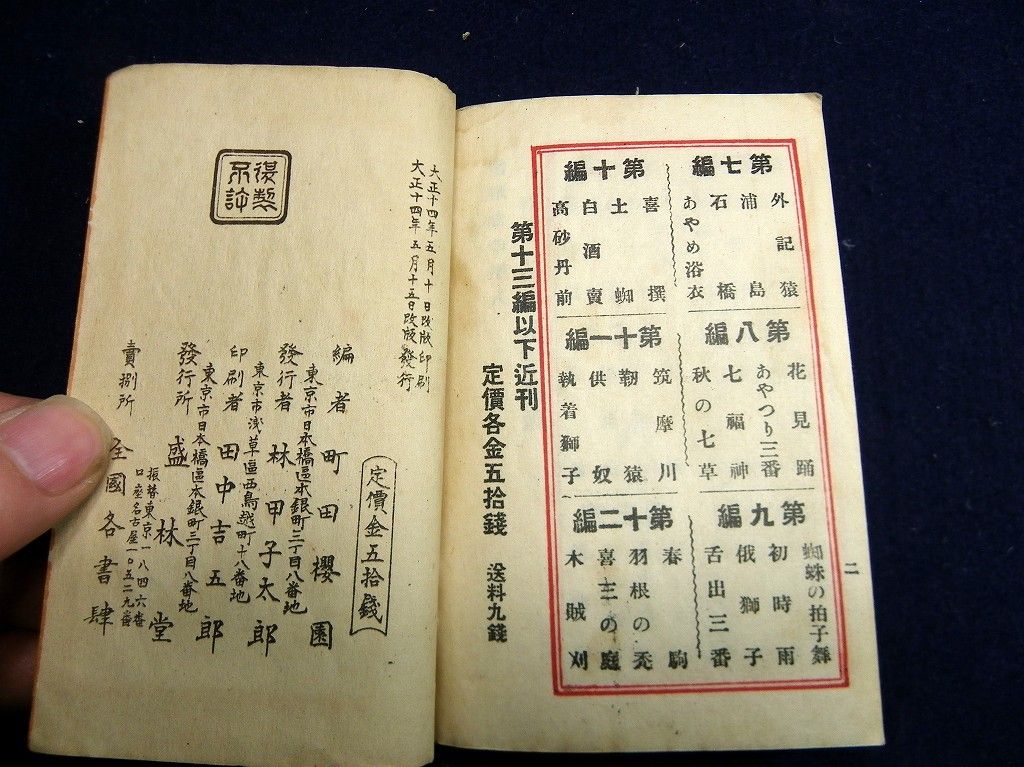 二
第七編
外記猿
浦島
石橋
あやめ浴衣
第八編
花見踊
あやつり三番
七福神
秋の七草
第九編
蜘蛛の拍子舞
初時雨
俄獅子
舌出三番
第十編
喜撰
土蜘
白酒賣
高砂丹前
第十一編
筑摩川
靱猿
供奴
執着獅子
第十二編
春駒
羽根の禿
喜三の庭
木賊刈
第十三編以下近刊
定價各金五拾錢 送料九錢
大正十四年五月十日改版印刷
大正十四年五月十五日改版發行
定價金五拾錢
編者 町田櫻園
東京市日本橋區本銀町三丁目八番地
發行者 林甲子太郎
東京市浅草區西鳥越町十八番地
印刷者 田中吉五郎
東京市日本橋區本銀町三丁目八番地
發行所 盛林堂
振替東京一一八四六番
口座名古屋一〇五二九番
賣捌所 全國各書肆
復製
不許